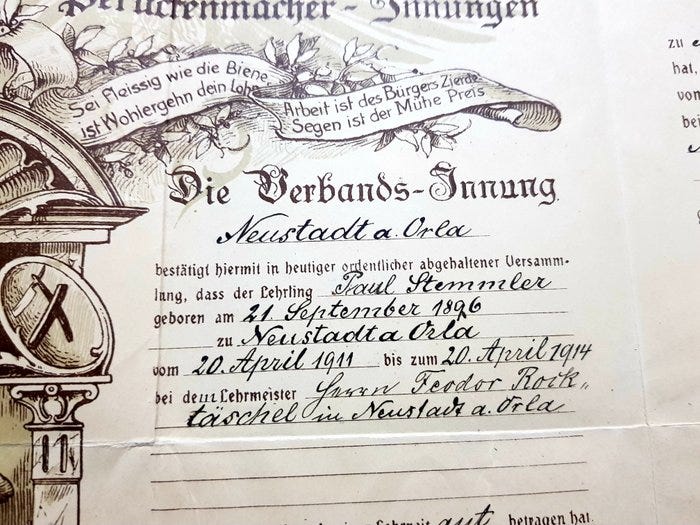 Perückenmacher-Innungen
Sei fleissig wie die Biene
ist Wohlergehn dein Lohn
Arbeit ist des Bürgers Zierde
Segen ist der Mühe Preis
Die Verbands-Innung
Neustadt a. Orla
bestätigt hiermit in heutiger ordentlicher abgehaltener Versamm-
lung, dass der Lehrling Paul Stemmler
geboren am 21. September 1896
zu Neustadt a Orla
vom 20. April 1911 bis zum 20. April 1914
bei dem Lehrmeister Herrn Feodor Rock-
täschel in Neustadt a. Orla
gut betragen hat.
zu
hat,
vom
bei